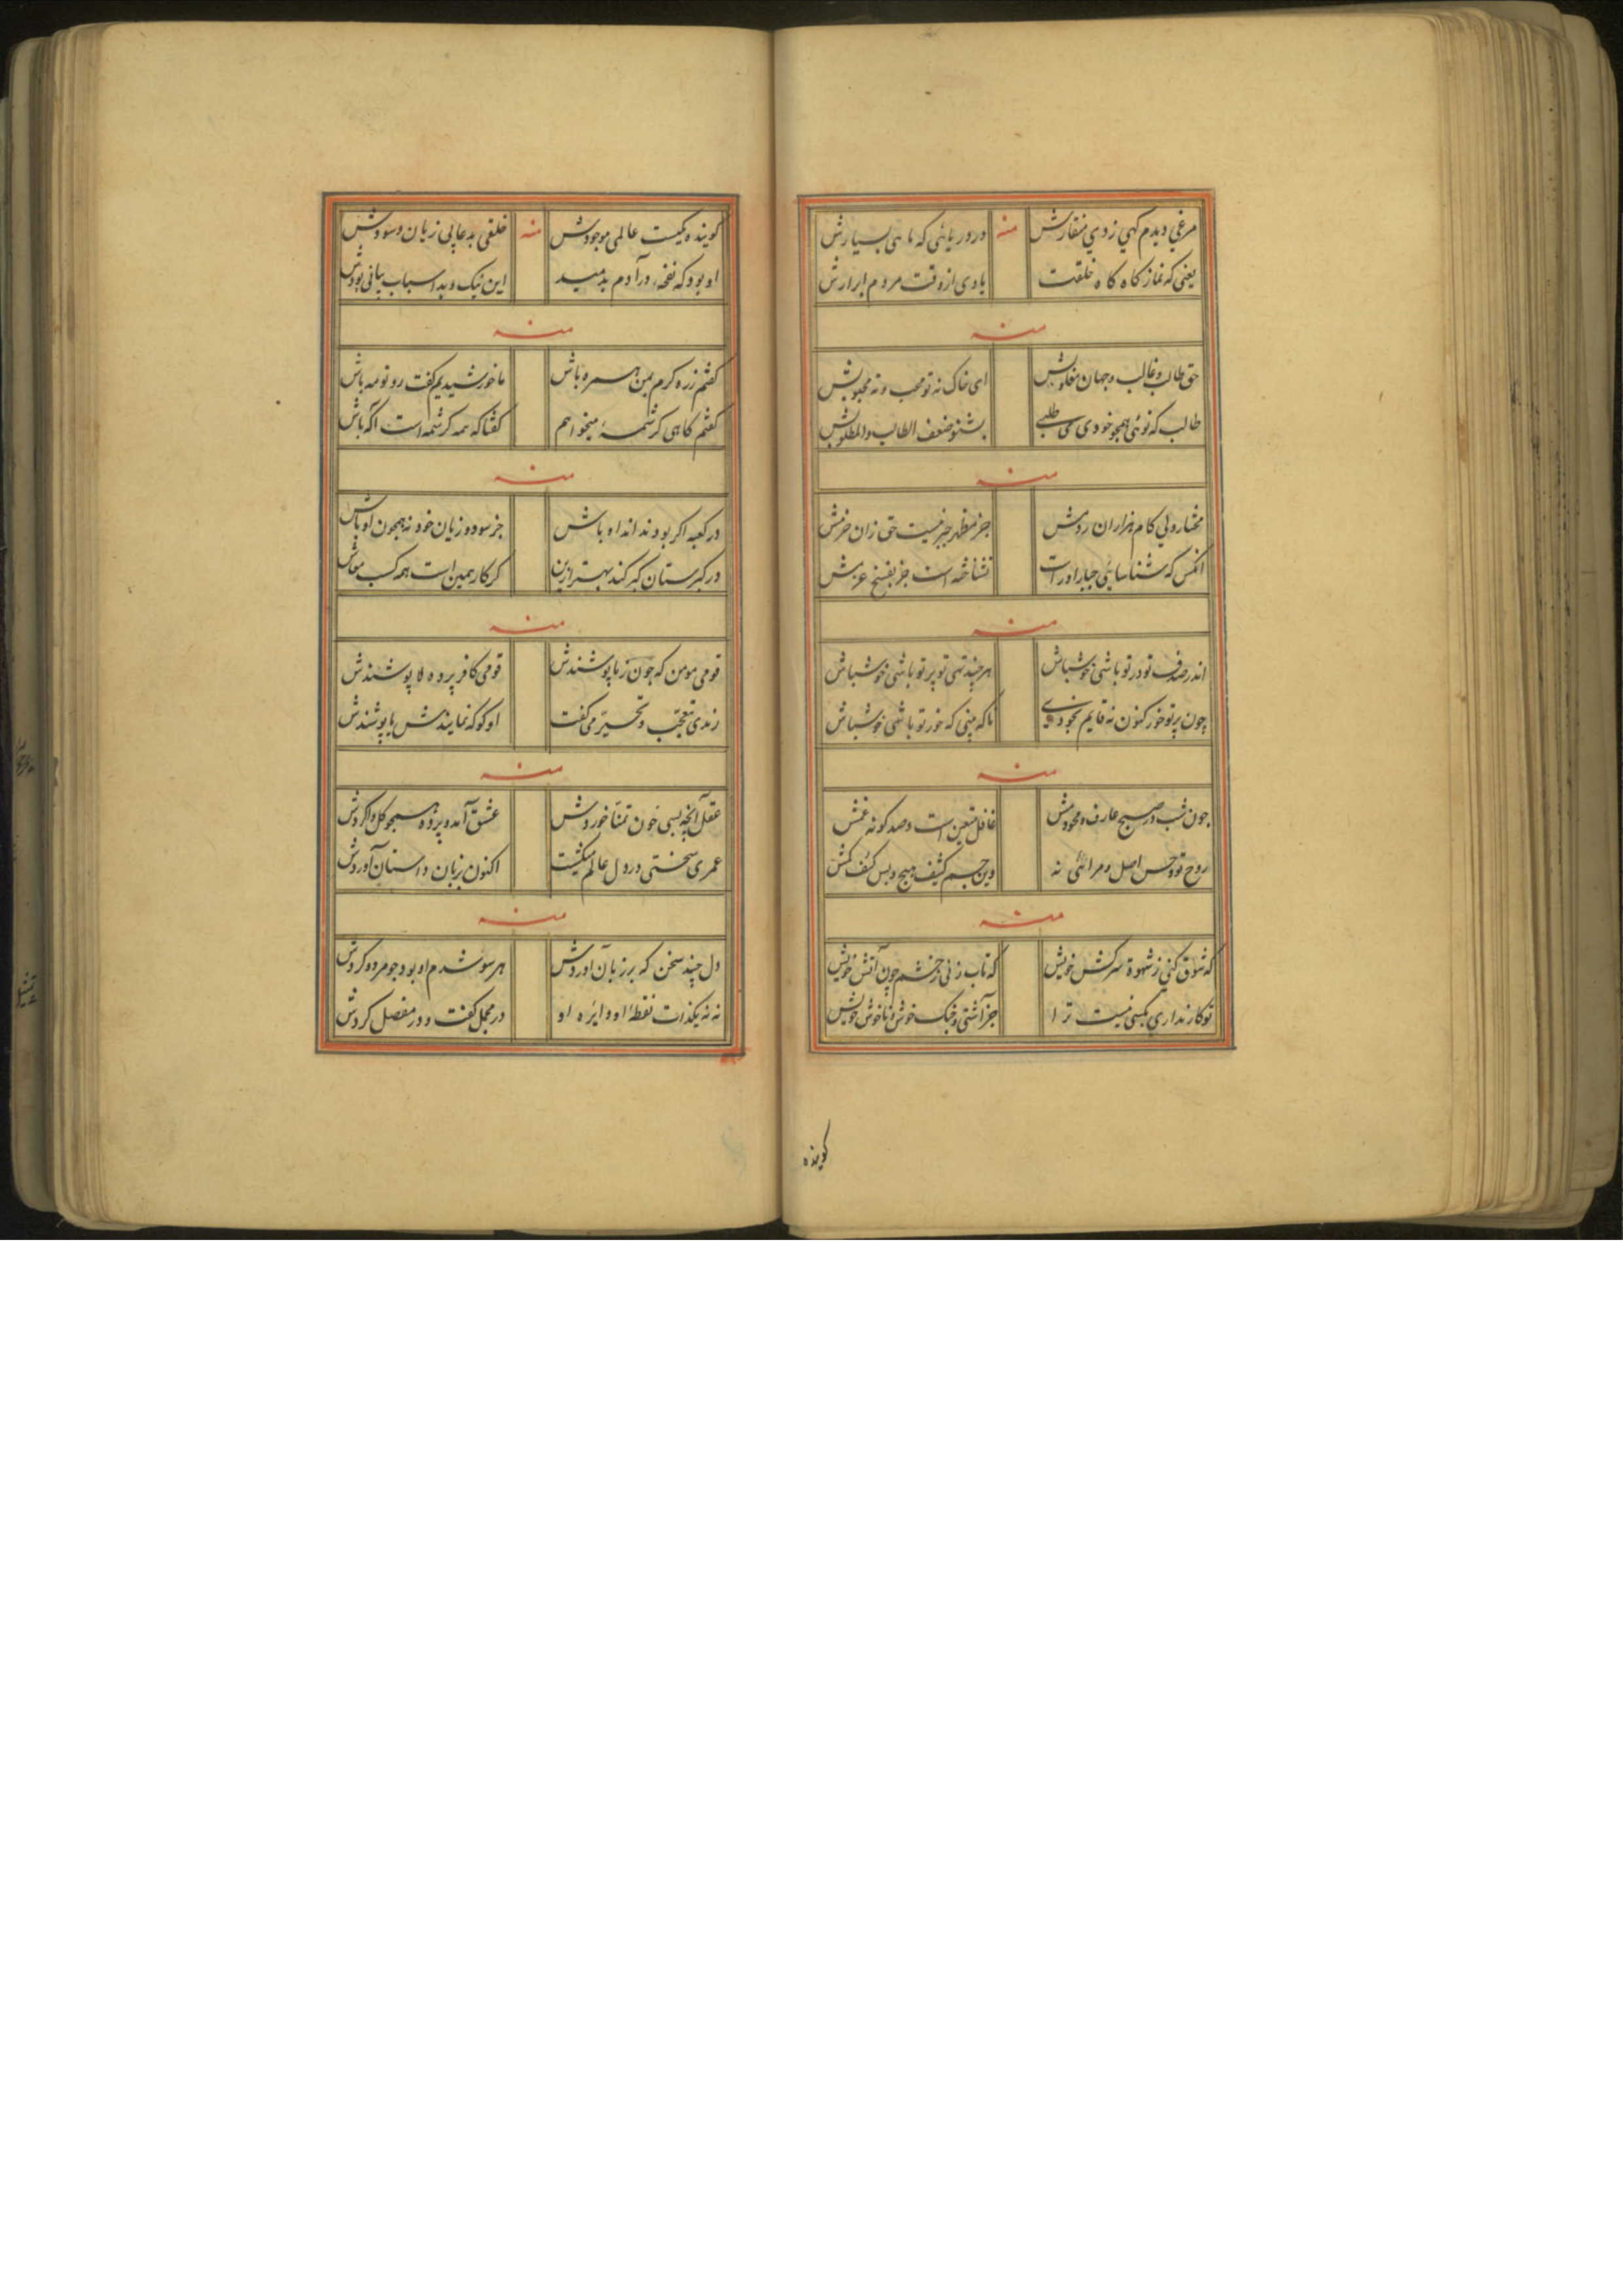 مرغی دیدم کهی زدی منقارش منه در ور یائی که ماهی بسیارش
یعنی که نماز کاه کاه خلقت یادی از وقت مردم ابرارش
منه
حق طالب و غالب و جهان مغلوبش ای خاک نه تو محب و نه محبوبش
طالب که توئی همچو خودی می طلبی بشنو ضعف الطالب والمطلوبش
منه
مختار ولی کام هزاران ردش جز مظهر خیر نیست حق زان
انکس که شناسایی جبار او راست نشناخته است جز بفسخ عزمش
منه
اندر صدف تو در تو باشی خوشباش هر چند تهی تو پر تو باشی خوشباش
چون پرتو خور کنون نه قایم بخودی تا که بینی که خور تو باشی خوشباش
منه
چون شب در صبح عارف و محو دمش غافل متعین است و صد کونه غمش
روح تو و حس اصل و مرائی نه وین جسم کثیف هیچ و بس کثف کمش
منه
که شوق کنی ز شهوة سرکش خویش که تاب زنی ز خشم چون آتش خویش
تو کار نداری بکسی نیست ترا جز آشتی و جنک خوش و ناخوش خویش
کوینده
کوینده یکیست عالمی موجودش منه خلقی بدعا پی زیان و سودش
او بود که نفخه در آدم بدمید این نیک و بد اسباب بیانی بودش
منه
کفتم ز ره کرم بمن همره باش ما خورشیدیم کفت رو تو مه باش
کفتم کاهی کرشمهٔ میخواهم کفتا که همه کرشمه است آکه باش
منه
در کعبه اکر بودند اند اوباش جز سود و زیان خود نه همچون او باش
در کبرستان کبر کند بهتر ازین کر کار همین است همه کسب معاش
منه
قومی مومن که چون زما پوشندش قومی کافر پرده لا پوشندش
رندی تعجب و تحیر می کفت او کو که نمایندش یا پوشندش
منه
عقل آنچه بسی خون تمنا خوردش عشق آمد و پرده همچو کل وا کردش
عمری سختی در دل عالم میکشت اکنون بزبان داستان آوردش
منه
دل چند سخن که بر زبان آوردش هر سو شدم او بود چو مرده کردش
نه نه یکذات نقطهٔ او دایره او در مجمل کفت و در مفصل کردش